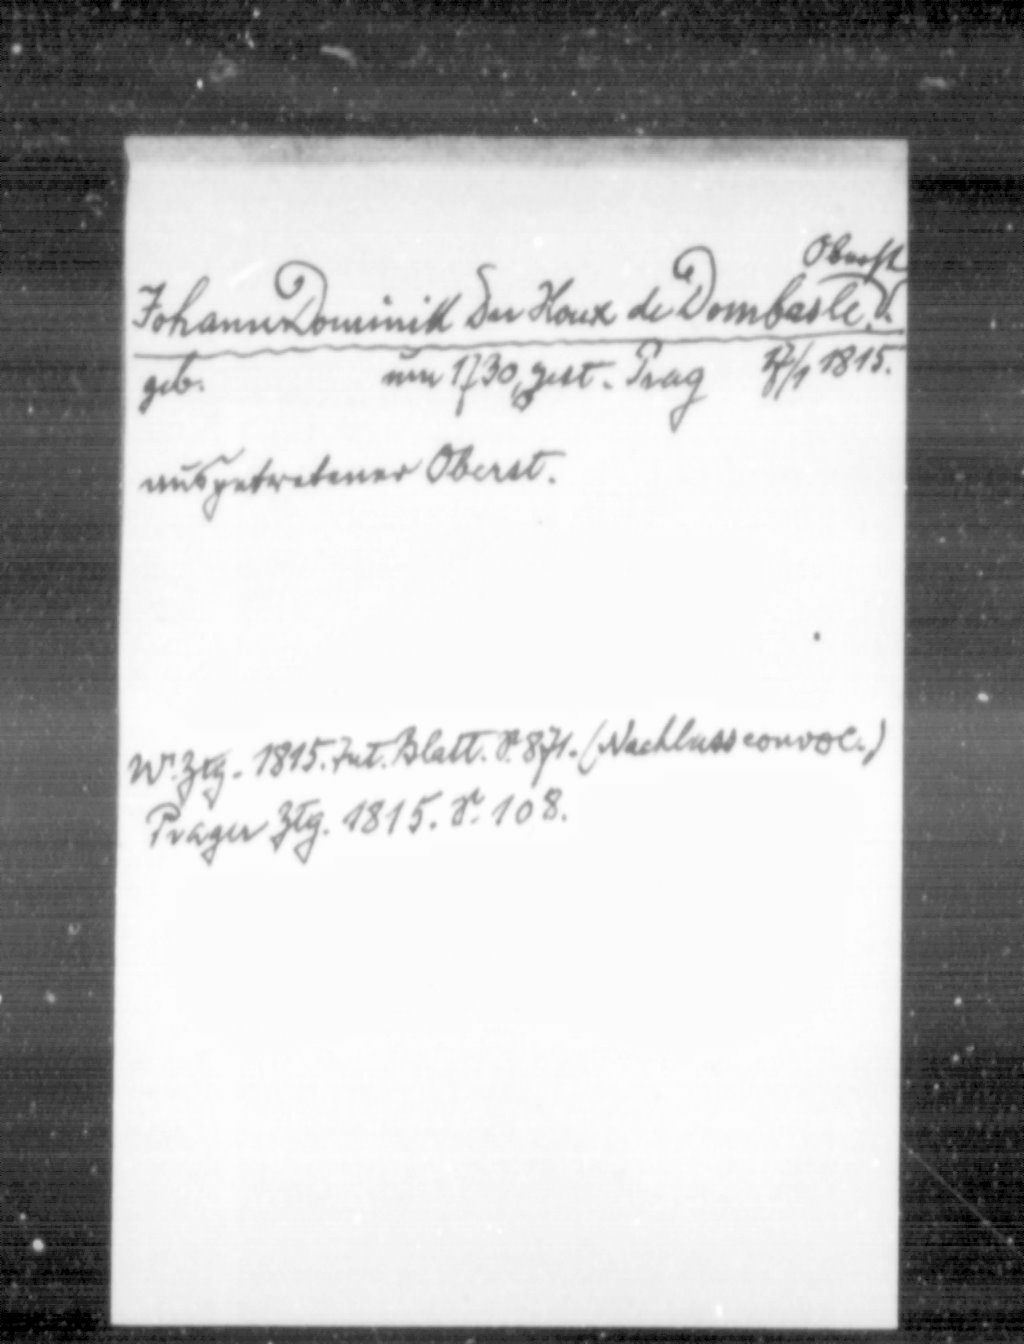 Oberst
Johann Dominik Du Houx de Dombasle, V.
geb. um 1730, gest. Prag 17/1 1815.
ausgetretener Oberst.
Wr. Ztg. 1815. Int. Blatt. S. 871. (Nachlassconvoc.)
Prager Ztg. 1815. S. 108.